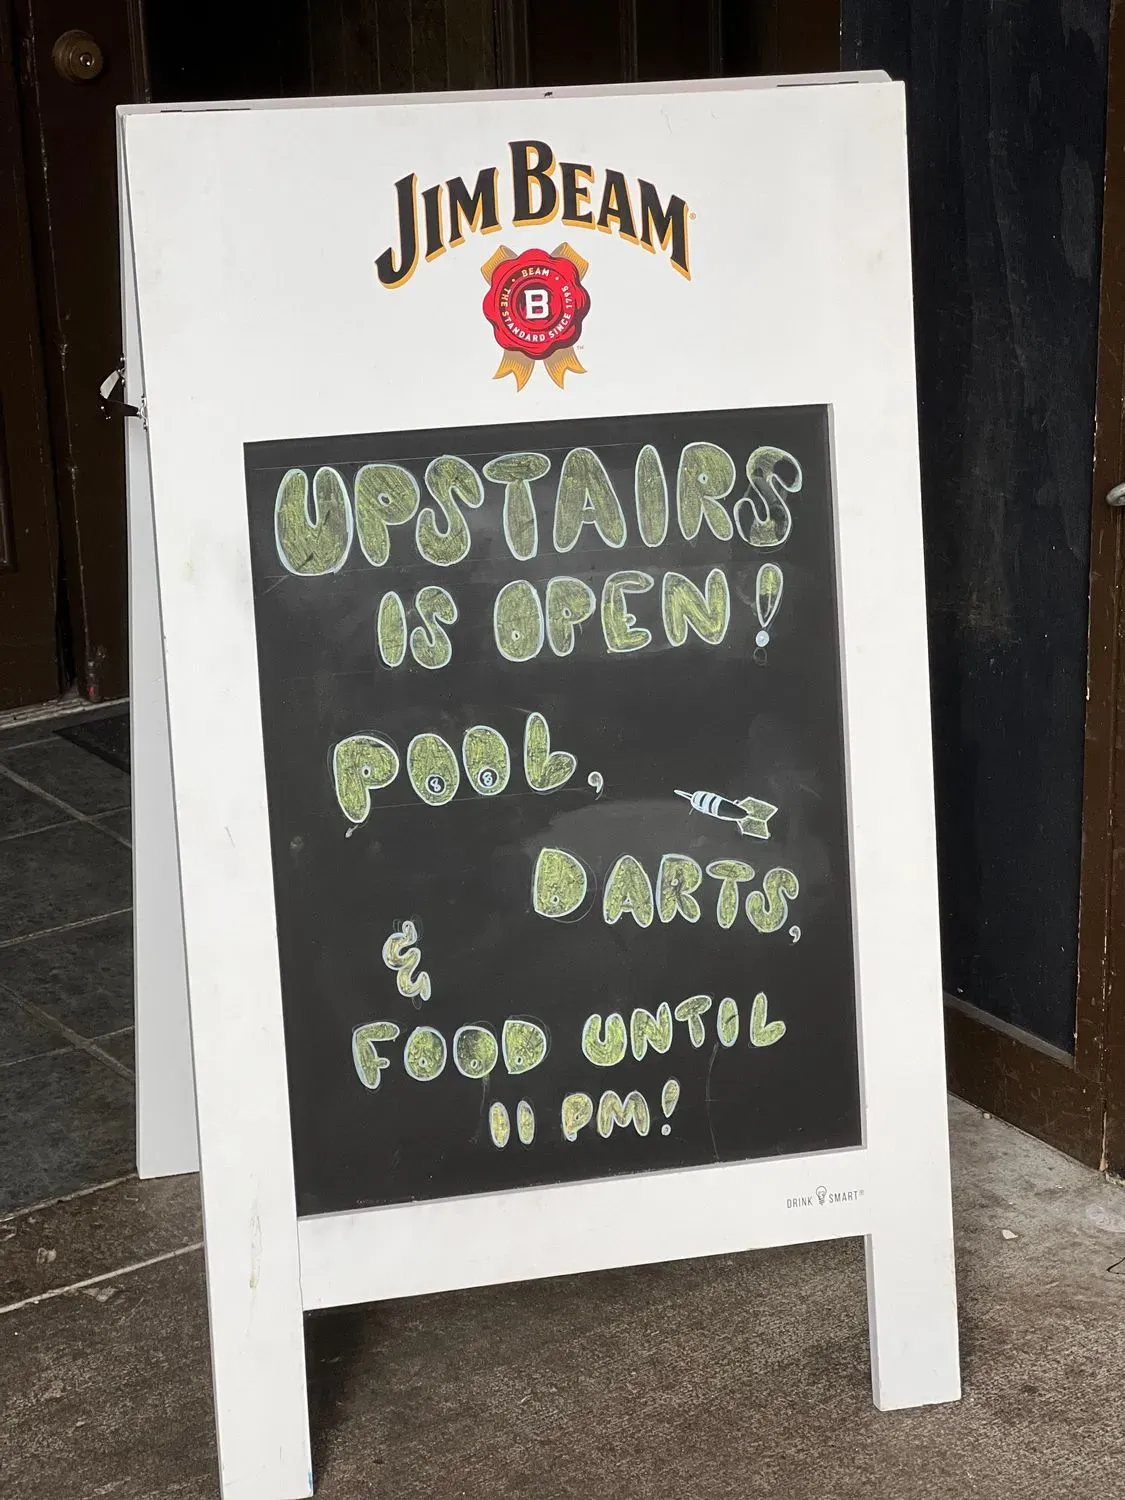 JIM BEAM®
BEAM
B
THE STANDARD SINCE 1795
UPSTAIRS
IS OPEN!
POOL,
8 8
DARTS,
&
FOOD UNTIL
11 PM!
DRINK SMART®